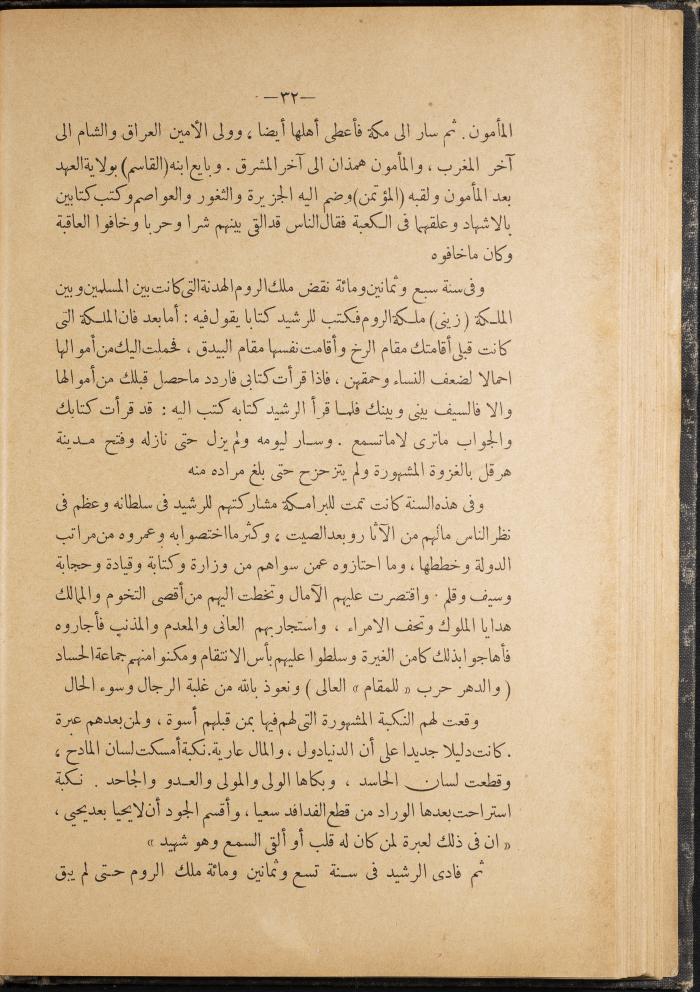 —٣٢—
المأمون . ثم سار الى مكة فأعطى أهلها أيضا ، وولى الأمين العراق والشام الى
آخر المغرب ، والمأمون همذان الى آخر المشرق . وبايع ابنه (القاسم) بولاية العهد
بعد المأمون ولقبه (المؤتمن) وضم اليه الجزيرة والثغور والعواصم وكتب كتابين
بالاشهاد وعلقهما فى الكعبة فقال الناس قد القى بينهم شرا وحربا وخافوا العاقبة
وكان ماخافوه
وفى سنة سبع وثمانين ومائة نقض ملك الروم الهدنة التى كانت بين المسلمين وبين
الملكة ( زينى ) ملكة الروم فكتب للرشيد كتابا يقول فيه : أما بعد فان الملكة التى
كانت قبلى أقامتك مقام الرخ وأقامت نفسها مقام البيدق ، فحملت اليك من أموالها
احمالا لضعف النساء وحمقهن ، فاذا قرأت كتابى فاردد ماحصل قبلك من أموالها
والا فالسيف بينى وبينك فلما قرأ الرشيد كتابه كتب اليه : قد قرأت كتابك
والجواب ماترى لا ماتسمع . وسار ليومه ولم يزل حتى نازله وفتح مدينة
هرقل بالغزوة المشهورة ولم يتزحزح حتى بلغ مراده منه
وفى هذه السنة كانت تمت للبرامكة مشاركتهم للرشيد فى سلطانه وعظم فى
نظر الناس مالهم من الآثار وبعد الصيت ، وكثر ما اختصوا به وعمروه من مراتب
الدولة وخططها ، وما احتازوه عمن سواهم من وزارة وكتابة وقيادة وحجابة
وسيف وقلم . واقتصرت عليهم الآمال وتخطت اليهم من أقصى التخوم والممالك
هدايا الملوك وتحف الامراء ، واستجار بهم العانى والمعدم والمذنب فأجاروه
فأهاجوا بذلك كامن الغيرة وسلطوا عليهم بأس الانتقام ومكنوا منهم جماعة الحساد
( والدهر حرب « للمقام » العالى ) ونعوذ بالله من غلبة الرجال وسوء الحال
وقعت لهم النكبة المشهورة التى لهم فيها بمن قبلهم أسوة ، ولمن بعدهم عبرة
. كانت دليلا جديدا على أن الدنيا دول ، والمال عارية. نكبة أمسكت لسان المادح ،
وقطعت لسان الحاسد ، وبكاها الولى والمولى والعدو والجاحد . نكبة
استراحت بعدها الوراد من قطع الفدافد سعيا ، وأقسم الجود أن لا يحيا بعد يحيى ،
« ان فى ذلك لعبرة لمن كان له قلب أو ألقى السمع وهو شهيد »
ثم فادى الرشيد فى سنة تسع وثمانين ومائة ملك الروم حتى لم يبق